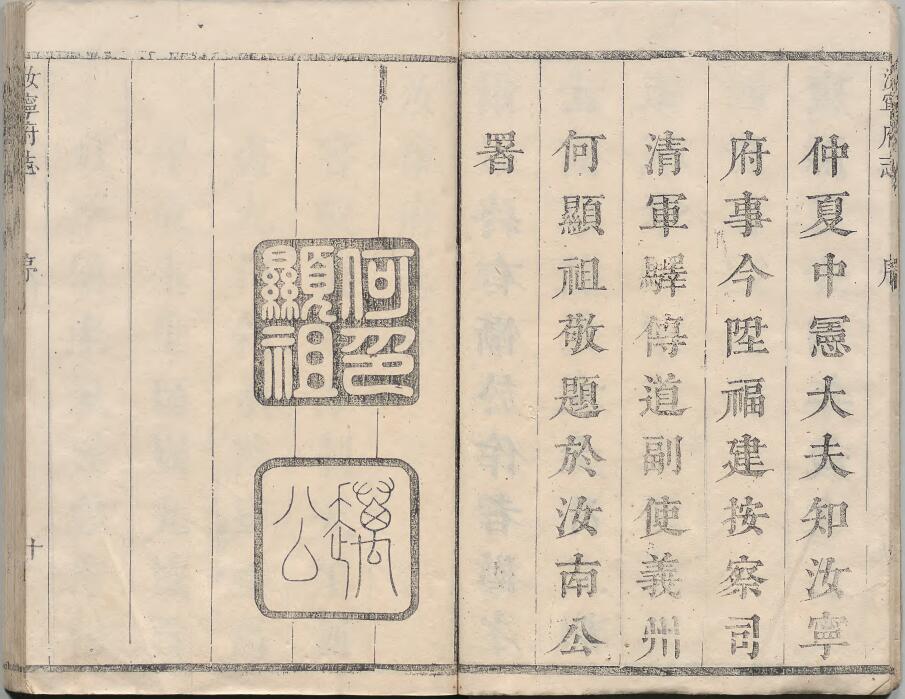 汝寧府志 序
仲夏中憲大夫知汝寧
府事今陞福建按察司
清軍驛傳道副使義州
何顯祖敬題於汝南公
署
何印
顯祖
公
汝寧府志 序 十